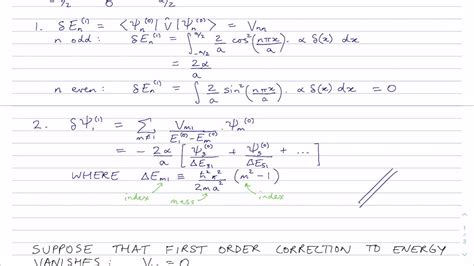 1. δE_n^(1) = ⟨ψ_n^(0)|V̂|ψ_n^(0)⟩ = V_nn
n odd: δE_n^(1) = ∫_{-a/2}^{a/2} 2/a cos²(nπx/a) α δ(x) dx
= 2α/a
n even: δE_n^(1) = ∫ 2/a sin²(nπx/a) α δ(x) dx = 0
2. δψ_1^(1) = Σ_{m≠1} V_m1/(E_1^(0) - E_m^(0)) ψ_m^(0)
= - 2α/a [ψ_3^(0)/ΔE_31 + ψ_5^(0)/ΔE_51 + ...]
WHERE ΔE_m1 ≡ ħ²π²/2ma² (m² - 1)
index mass index
SUPPOSE THAT FIRST ORDER CORRECTION TO ENERGY
VANISHES: = 0